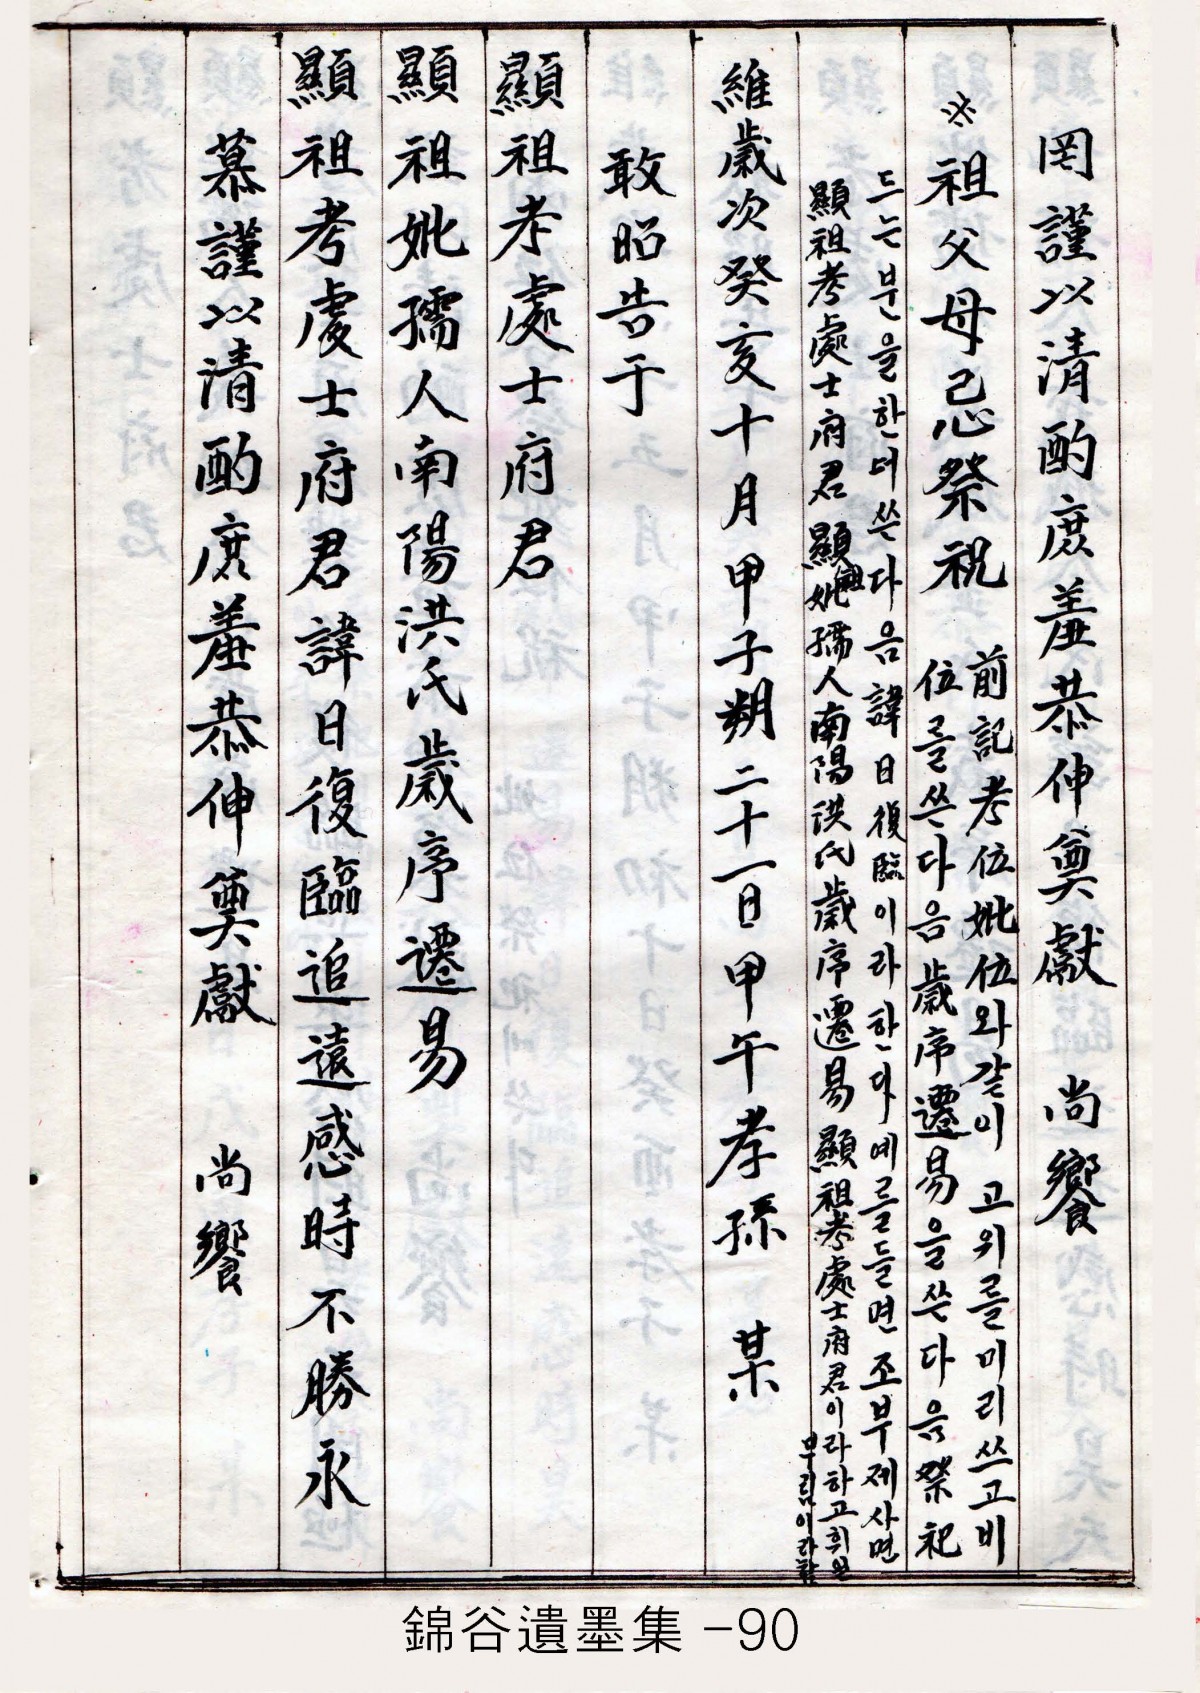 罔謹以清酌庶羞恭伸奠獻 尙饗
※祖父母忌祭祝 前記考位妣位와같이 고위를미리쓰고비
位를쓴다음歲序遷易을쓴다음祭祀
드는분을한더쓴다음諱日復臨이라한다예를들면조부제사면
顯祖考處士府君顯祖妣孺人南陽洪氏歲序遷易顯祖考處士府君이라하고휘일
부림이라함
維歲次癸亥十月甲子朔二十一日甲午孝孫 某
敢昭告于
顯祖考處士府君
顯祖妣孺人南陽洪氏歲序遷易
顯祖考處士府君諱日復臨追遠感時不勝永
慕謹以清酌庶羞恭伸奠獻 尙饗
錦谷遺墨集 -90